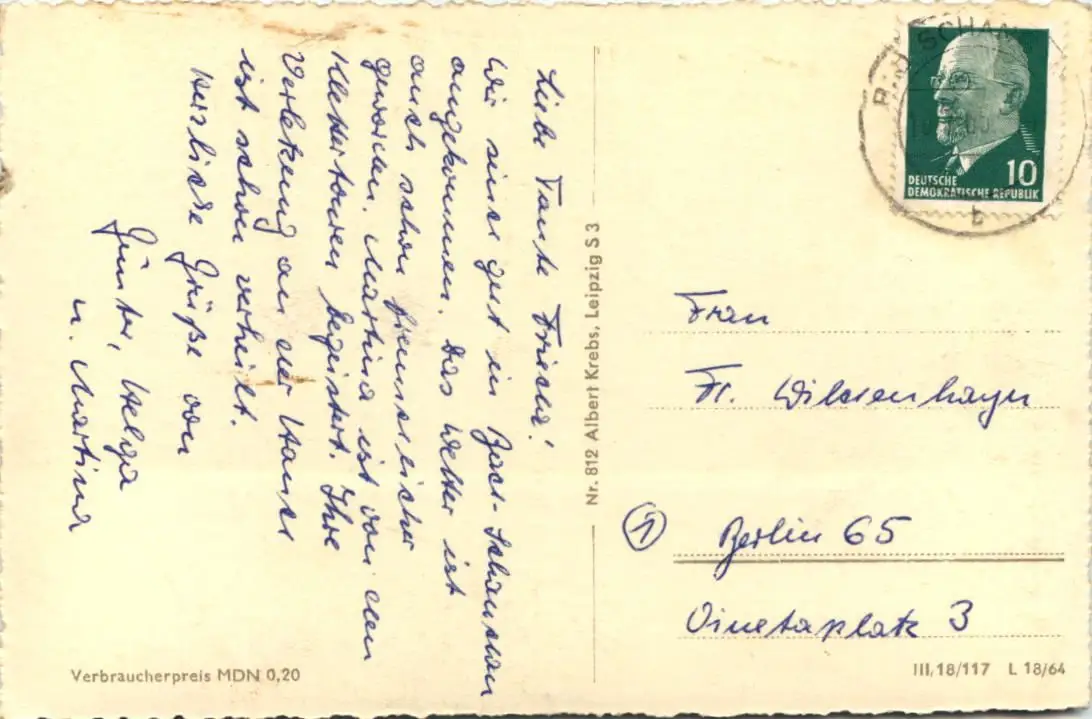 Liebe Tante Frieda!
Wir sind gut in Bad-Schandau
angekommen. Das Wetter ist
auch schon freundlicher
geworden. Martina ist von den
Klettertouren begeistert. Ihre
Verletzung an der Hand
ist schon verheilt.
Herzliche Grüße von
Günter, Helga
u. Martina
Verbraucherpreis MDN 0,20
Nr. 812 Albert Krebs, Leipzig S 3
BAD SCHAN
b
10
DEUTSCHE
DEMOKRATISCHE REPUBLIK
Frau
Fr. Wilssenhagen
① Berlin 65
Vinetaplatz 3
III,18/117 L 18/64